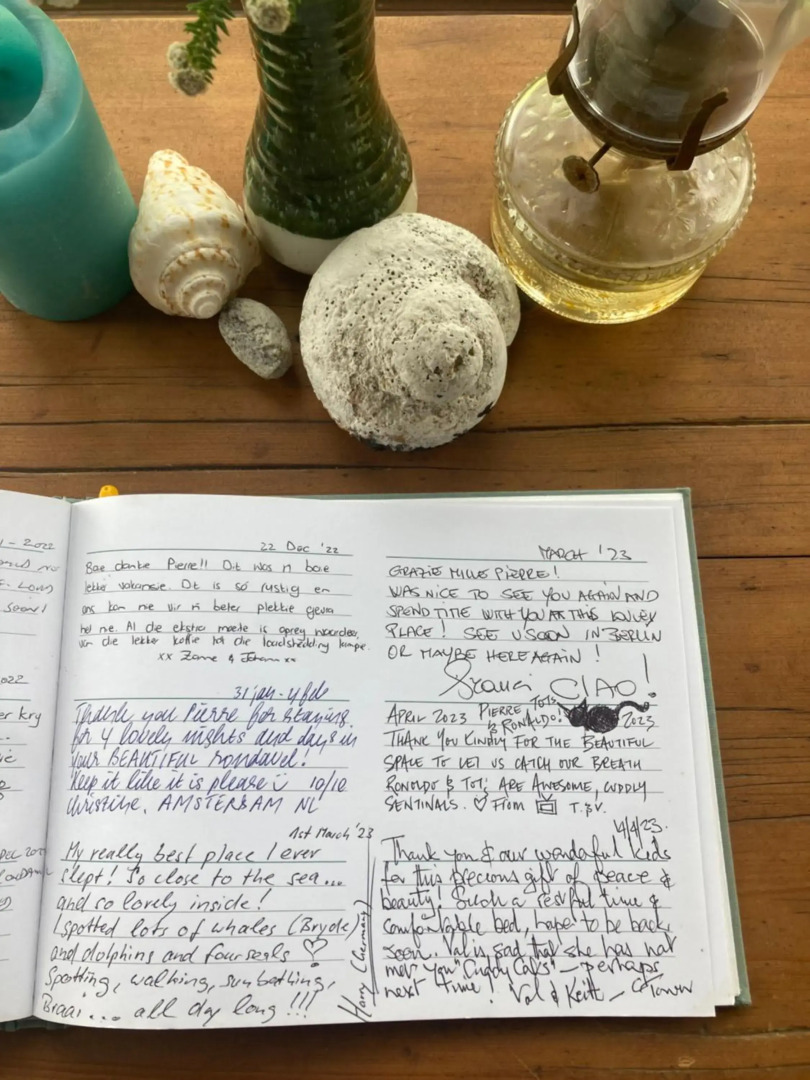 1 - 2022
soon!
2022
er kry
DEC 20
22 Dec '22
Baie dankie Pierre!! Dit was 'n baie
lekker vakansie. Dit is só rustig en
ons kon nie vir 'n beter plekkie gevra
het nie. Al die ekstra moeite is opreg waardeer,
van die lekker koffie tot die loadshedding lampe.
xx Zane & Johann xx
31 jan - 4 feb
Thank you Pierre for staying
for 4 lovely nights and days in
your BEAUTIFUL rondavel!
Keep it like it is please 10/10
Christine, AMSTERDAM NL
1st March '23
My really best place I ever
slept! So close to the sea...
and so lovely inside!
I spotted lots of whales (Bryde)
and dolphins and four seals ♡
Spotting, walking, sunbathing,
Braai... all day long!!!
Harry (Germany)
MARCH '23
GRAZIE MILLE PIERRE!
WAS NICE TO SEE YOU AGAIN AND
SPEND TIME WITH YOU AT THIS LOVELY
PLACE! SEE U SOON IN BERLIN
OR MAYBE HERE AGAIN!
CIAO!
APRIL 2023 PIERRE TOTS
& RONALDO! 2023
THANK YOU KINDLY FOR THE BEAUTIFUL
SPACE TO LET US CATCH OUR BREATH
RONOLDO & TOTS ARE AWESOME, CUDDLY
SENTINALS. ♡ From T.&V.
4/4/23.
Thank you & our wonderful kids
for this precious gift of peace &
beauty! Such a restful time &
comfortable bed, hope to be back
soon. Val is sad that she has not
met your "Cuddly Cats" - perhaps
next time! Val & Keith - C Town